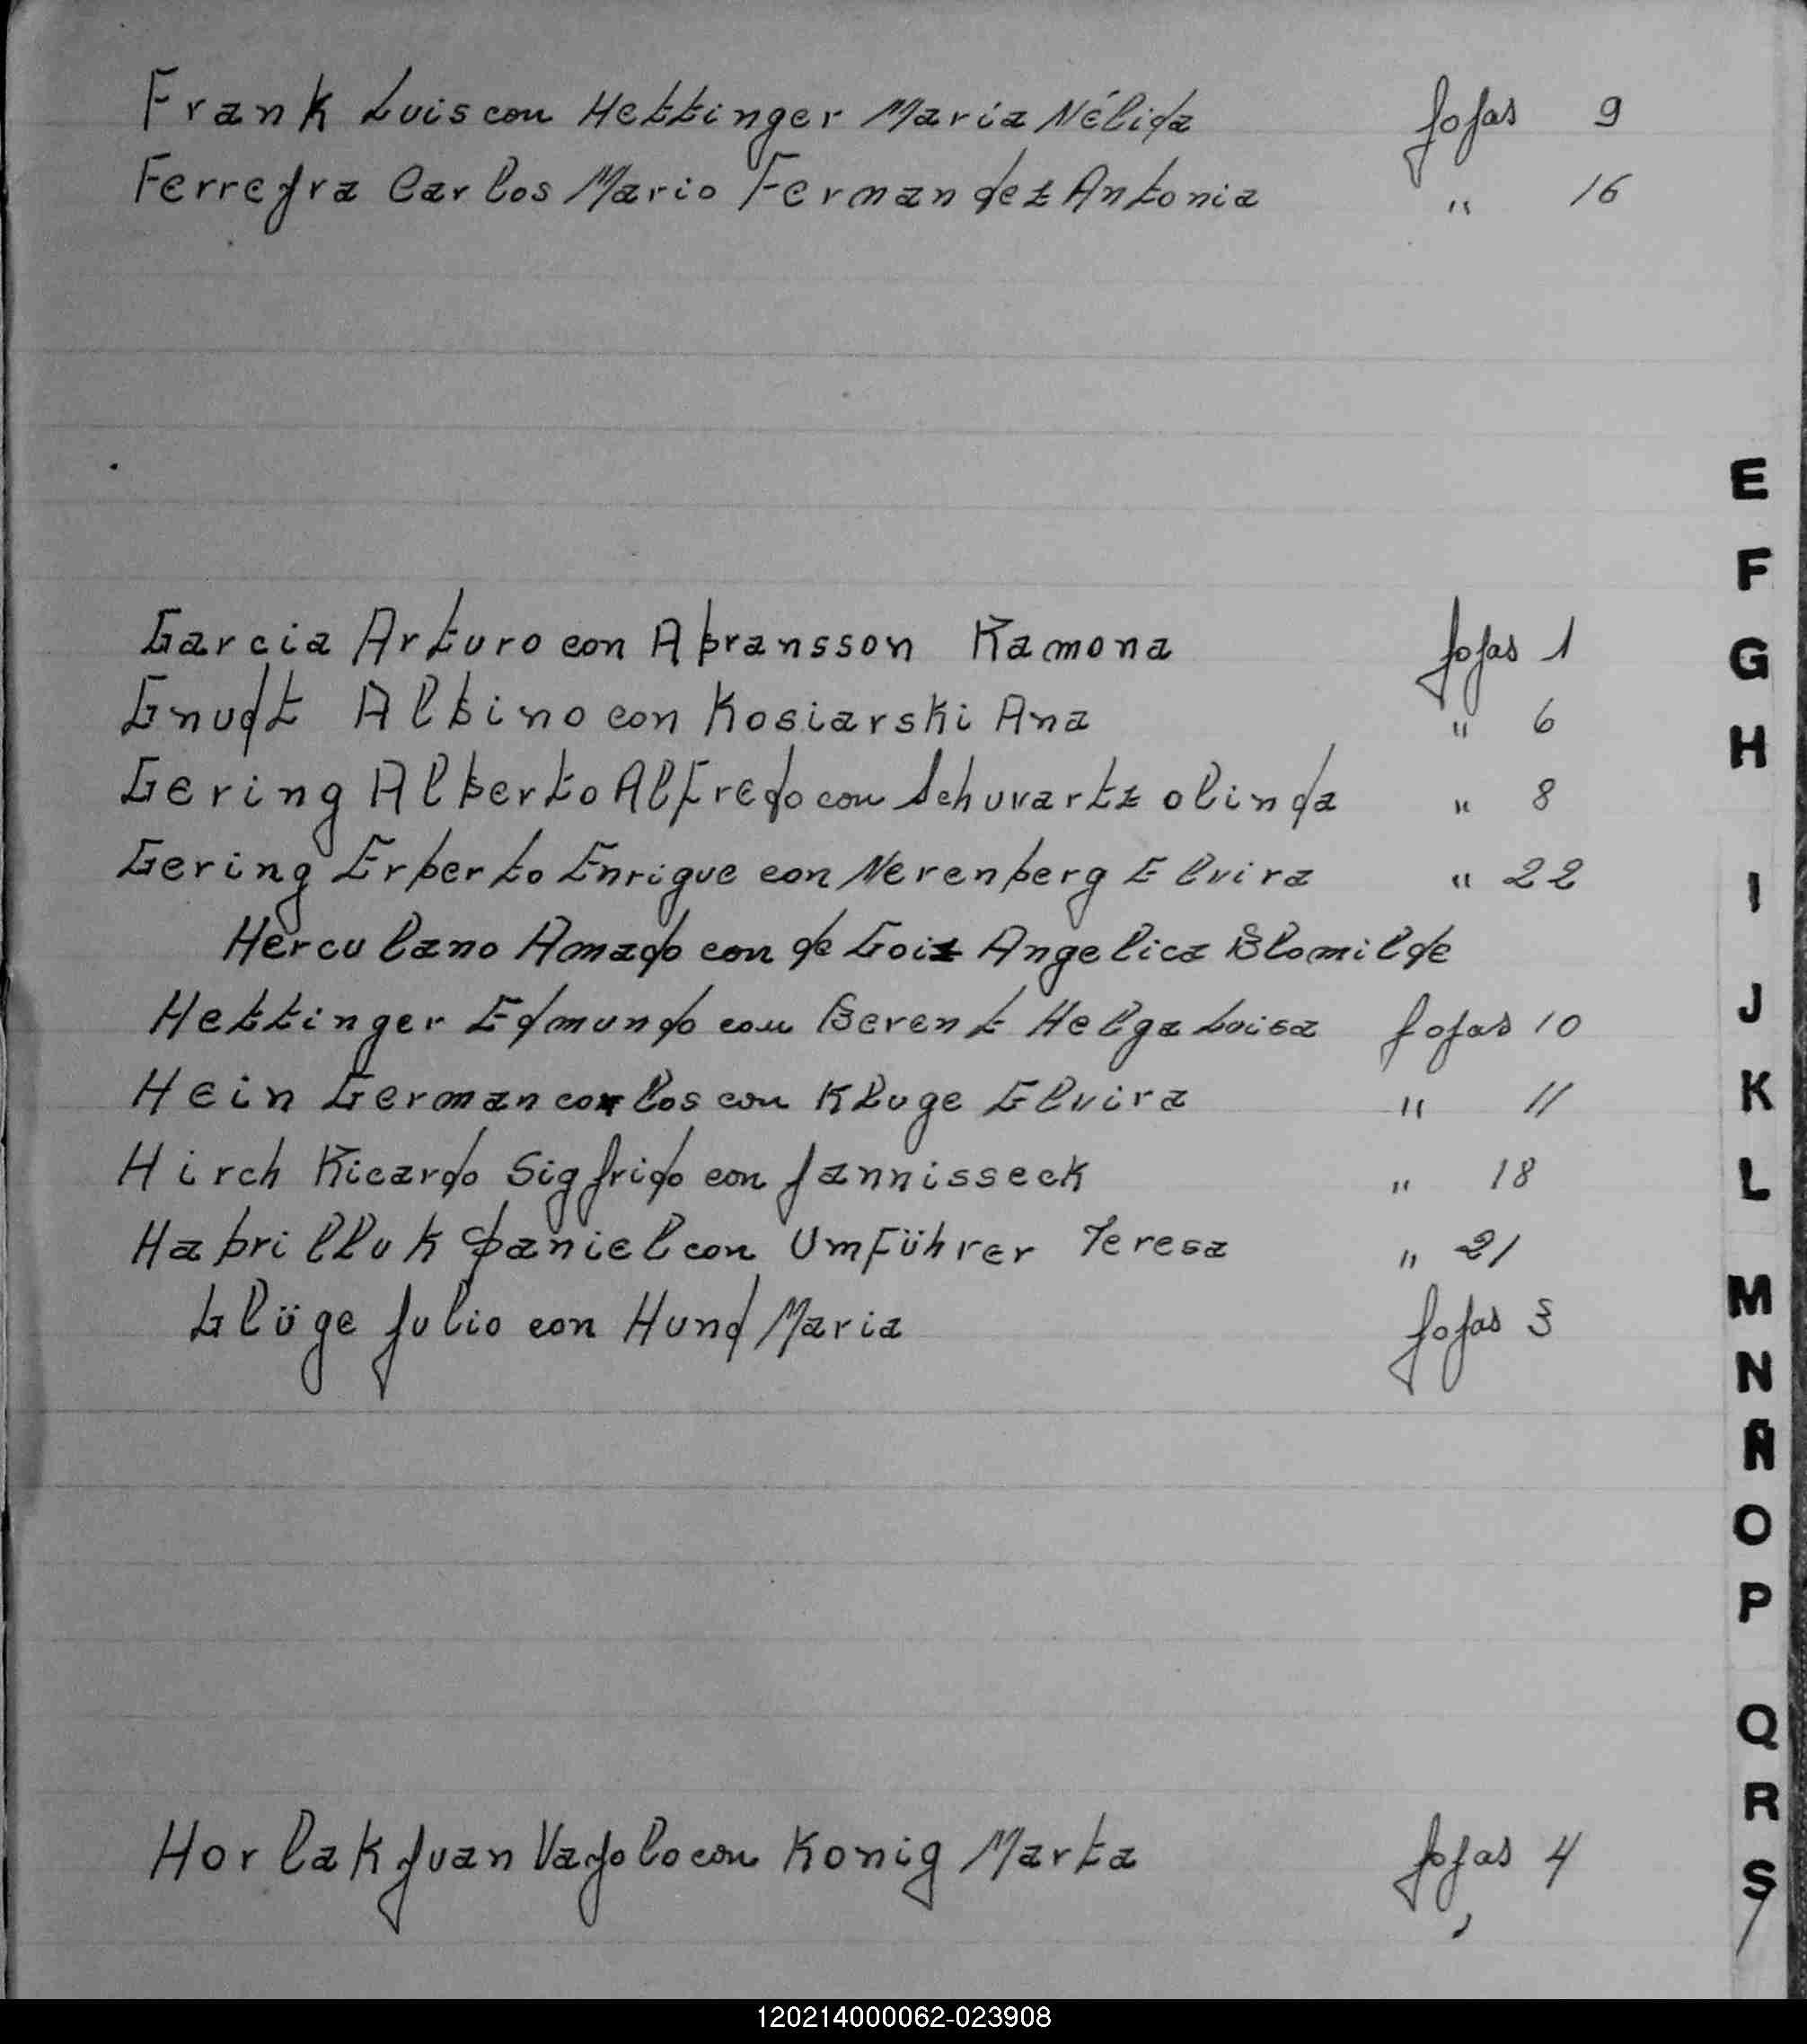 Frank Luis con Hettinger María Nélida fojas 9
Ferrejra Carlos Mario Fernandez Antonia " 16
E
F
Garcia Arturo con Abransson Ramona fojas 1
G
Gnudt Albino con Kosiarski Ana " 6
H
Gering Alberto Alfredo con Schuvartz olinda " 8
Gering Erberto Enrique con Nerenberg Elvira " 22
I
Herculano Amado con de Goiz Angelica Blomilde
Hettinger Edmundo con Berent Helga Luisa fojas 10
J
Hein German carlos con Kluge Elvira " 11
K
Hirch Ricardo Sigfrido con Jannisseck " 18
L
Habrilluk Daniel con Umführer Teresa " 21
M
Glüge Julio con Hund Maria fojas 3
N
Ñ
O
P
Q
R
Horlak Juan Vajolo con Konig Marta fojas 4
S
120214000062-023908